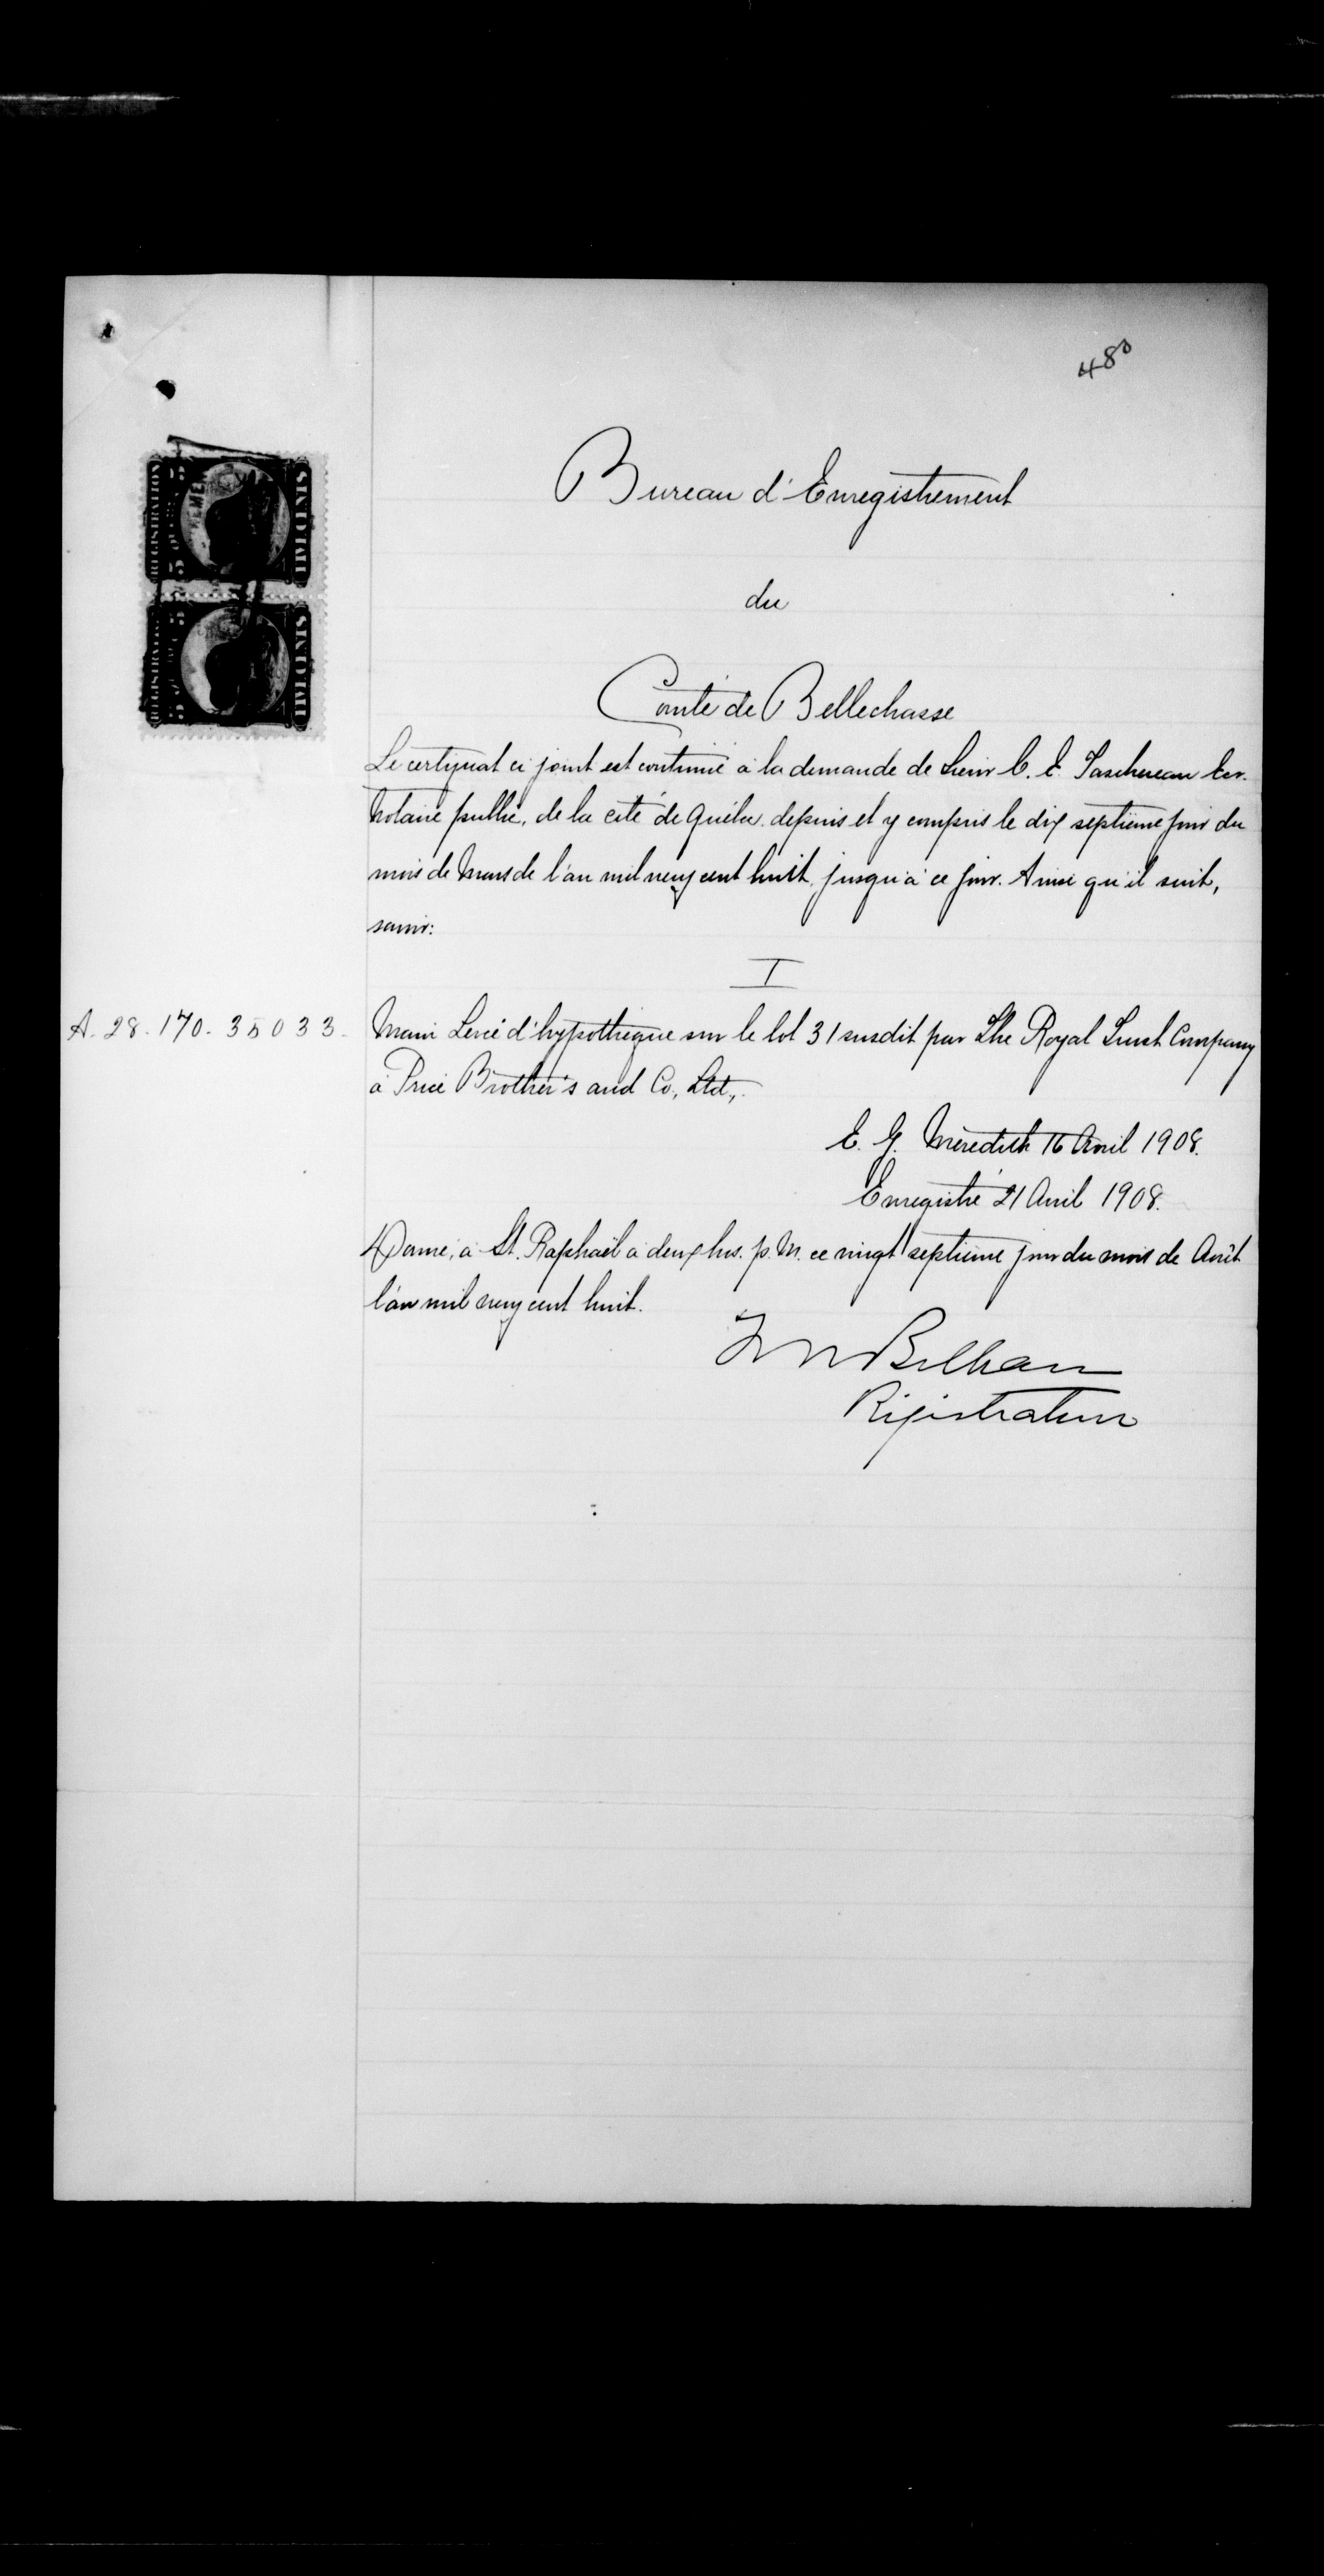 480
Bureau d'Enregistrement
du
Comté de Bellechasse
Le certificat ci joint est continué à la demande de Sieur C. E. Taschereau Ecr.
Notaire public, de la cité de Québec depuis et y compris le dix septième jour du
mois de Mars de l'an mil neuf cent huit, jusqu'à ce jour. Ainsi qu'il suit,
savoir:
I
A. 28. 170. 35033. Main Levée d'hypothèque sur le lot 31 susdit par The Royal Trust Company
à Price Brother's and Co., Ltd.,
E. G. Meredith 16 Avril 1908.
Enregistré 21 Avril 1908.
Donné, à St. Raphaël à deux hrs. p. M. ce vingt septième jour du mois de Août
l'an mil neuf cent huit.
Régistrateur
REGISTRATION
FIVE CENTS
FIVE CENTS